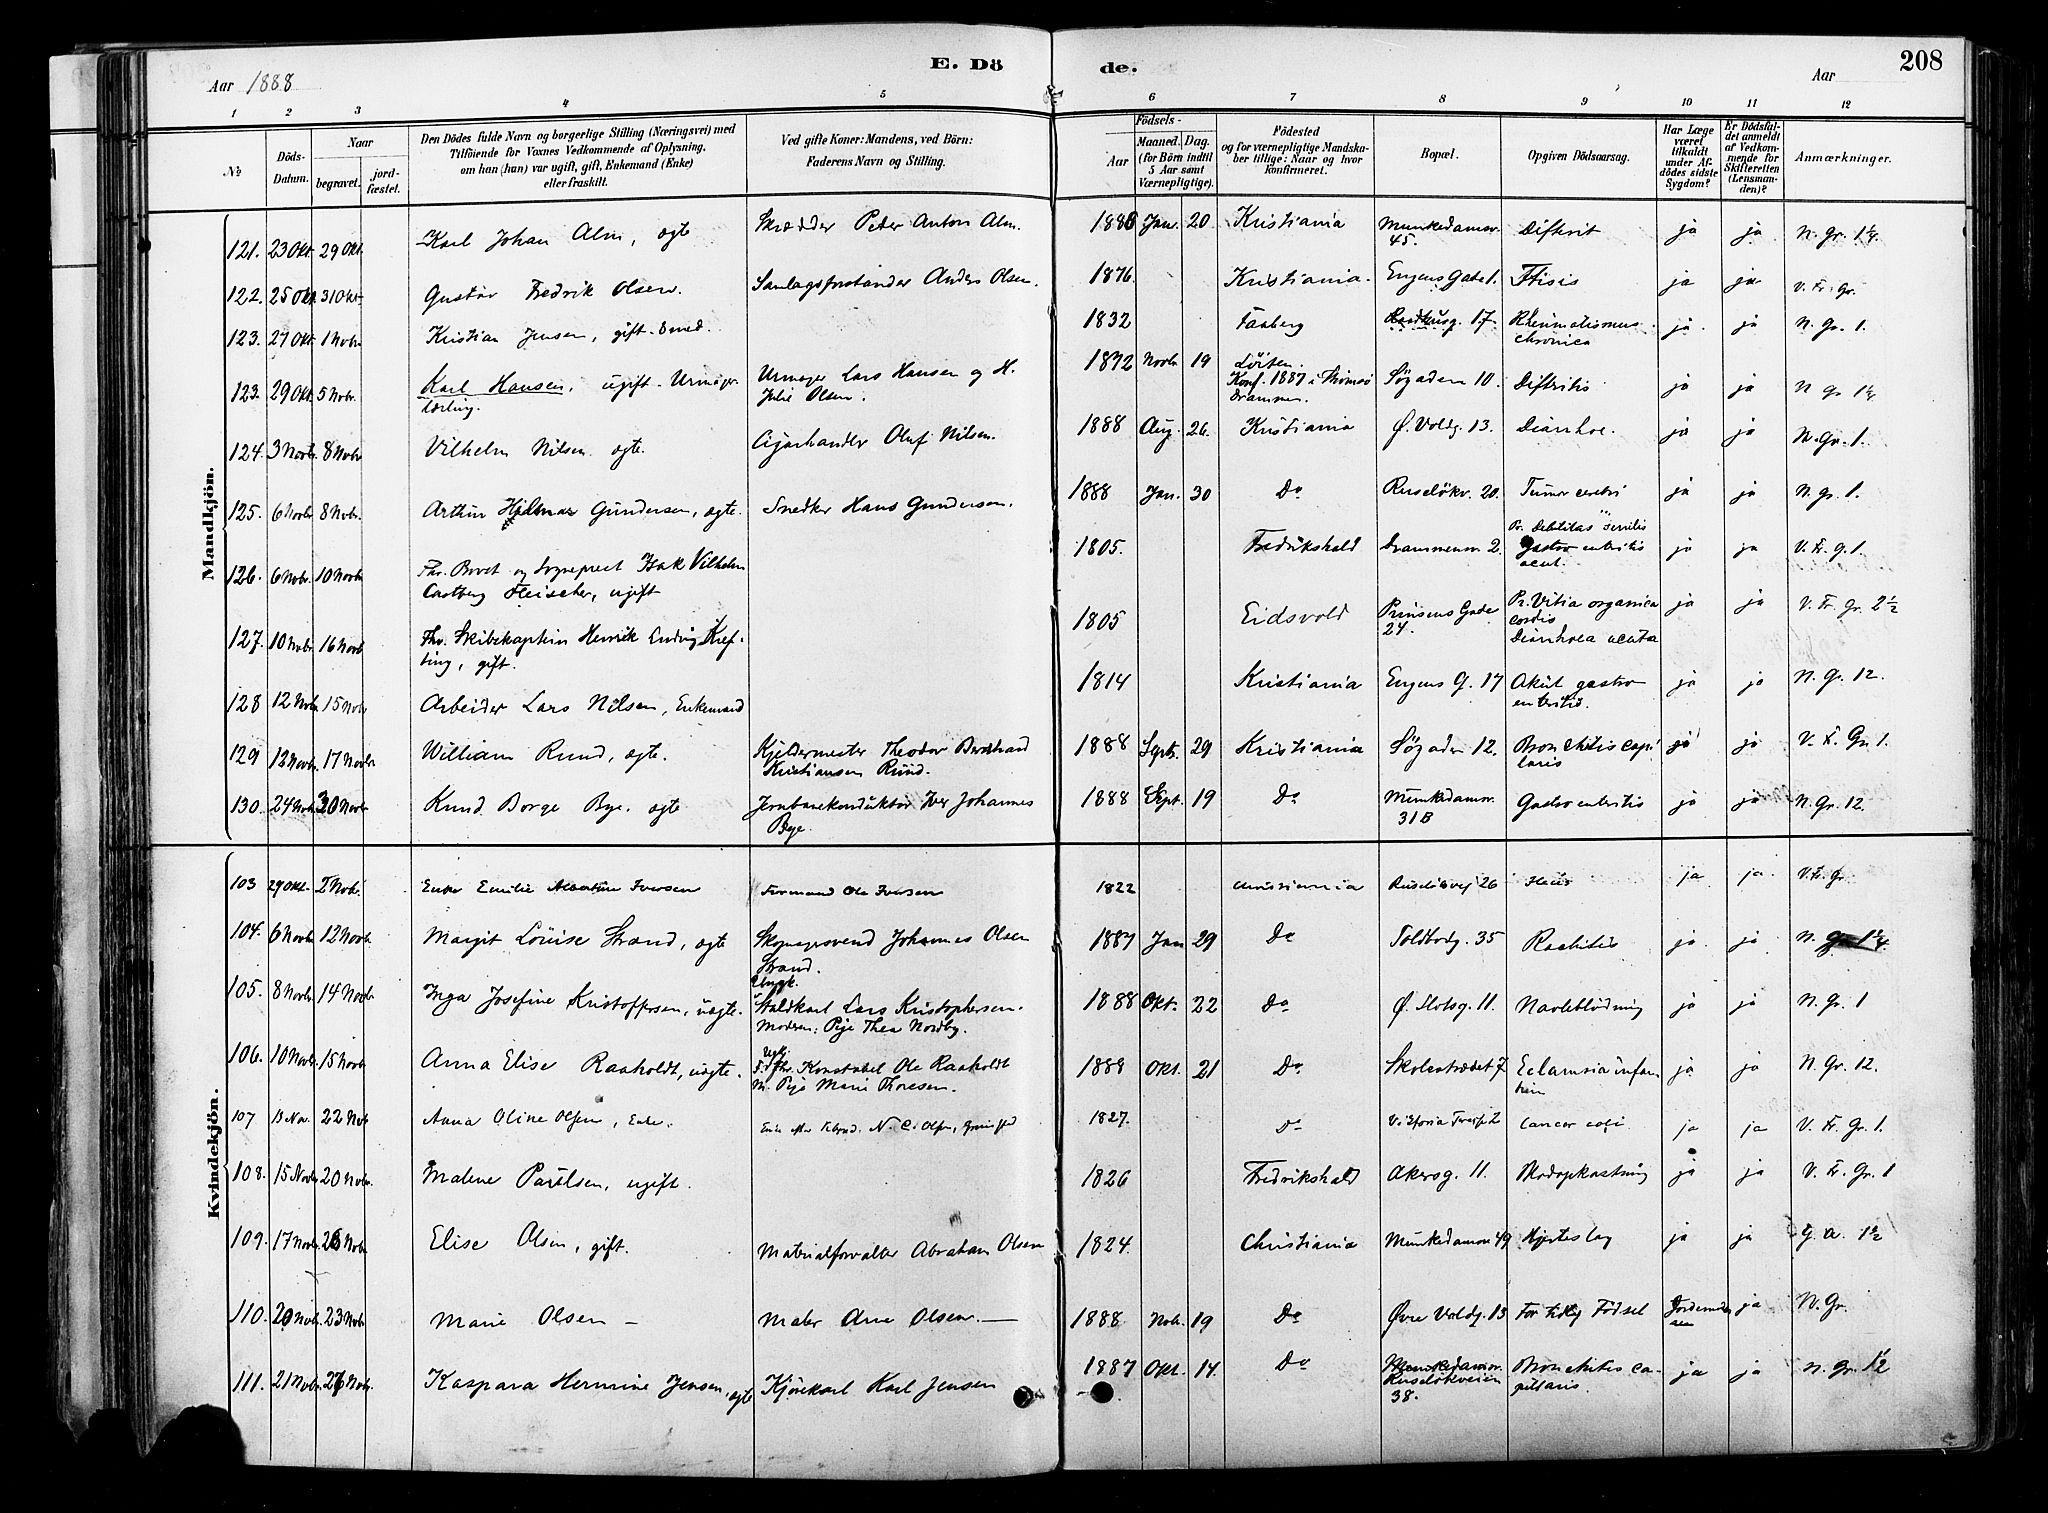 E. Dö de. 208
Aar 1888 Aar
1 2 3 4 5 6 7 8 9 10 11 12
№
Döds-Datum.
Naar
begravet. jordfæstet.
Den Dödes fulde Navn og borgerlige Stilling (Næringsvei) med
Tilföiende for Voxnes Vedkommende af Oplysning,
om han (hun) var ugift, gift, Enkemand (Enke)
eller fraskilt.
Ved gifte Koner: Mandens, ved Börn:
Faderens Navn og Stilling.
Födsels-
Aar Maaned. Dag.
(for Börn indtil
5 Aar samt
Værnepligtige).
Födested
og for værnepligtige Mandskaber tillige: Naar og hvor
konfirmeret.
Bopæl.
Opgiven Dödsaarsag.
Har Læge
været
tilkaldt
under Afdödes sidste
Sygdom?
Er Dödsfaldet anmeldt
af Vedkommende for
Skifteretten
(Lensmanden)?
Anmærkninger.
Mandkjön.
121. 23 Okt. 29 Okt. Karl Johan Alm, ægte Skrædder Peter Anton Alm. 1886 Jan. 20 Kristiania Munkedamsv. 45. Difterit ja ja N. Gr. 1¼
122. 25 Okt. 31 Okt. Gustav Fredrik Olsen. Samlagsforstander Anders Olsen. 1876 Kristiania. Enzens Gade 1. Ftisis ja ja V. Fr. Gr.
123. 27 Okt. 1 Novbr. Kristian Jensen, gift. Smed. 1832 Faaberg Raadhusg. 17. Rheumatismus chronica ja ja N. Gr. 1.
123. 29 Okt. 5 Nobr. Karl Hansen, ugift. Urmagerlærling. Urmager Lars Hansen og H. Julie Olsen. 1872 Novbr 19 Løiten. Konf. 1887 i Strømsø Drammen. Søgaden 10. Difteritis ja ja N gr 1¼
124. 3 Novbr. 8 Nobr Vilhelm Nilsen ægte. Cigarhandler Oluf Nilsen. 1888 Aug. 26. Kristiania Ø. Voldg. 13. Diarrhoe. ja ja N. Gr. 1.
125. 6 Novbr 8 Nobr. Arthur Hjalmar Gundersen, ægte. Snedker Hans Gundersen. 1888 Jan. 30 Do Ruseløkv. 20. Tumor cerebri ja ja N. gr. 1.
126. 6 Nobr. 10 Novbr. Fhv. Provst og Sogneprest Isak Vilhelm Castberg Fleischer, ugift 1805. Fredrikshald Drammensv. 2. Pr. Debilitas senilis Gastro enteritis acut. ja ja V. Fr. g. 1.
127. 10 Nobr. 16 Novb Fhv. Skibskaptein Henrik Ludvig Krefting, gift. 1805 Eidsvold Prinsens Gade 24. Pr. Vitia organica cordis Diarrhoea acuta ja ja V. Fr. Gr. 2½
128 12 Novbr. 15 Nobr Arbeider Lars Nilsen, Enkemand 1814 Kristiania Enzens G. 17 Akut gastro enteritis. ja ja N. Gr. 12.
129 12 Novbr. 17 Novbr William Rund, ægte. Kjeldermester Theodor Berntrand Kristiansen Rund. 1888 Septr. 29 Kristiania Søgaden 12. Bronchitis capilaris ja ja V. Fr. Gr. 1.
130. 24 Nobr. 30 Novbr Knud Borge Bye. ægte Jernbanekonduktør Iver Johannes Bye. 1888 Sept. 19 Do Munkedamsv. 31 B Gastro enteritis ja ja N. Gr. 12.
Kvindekjön.
103 29 Okt. 5 Nobr. Enke Emilie Albertine Iversen Formand Ole Iversen 1822 Christiania Ruseløkvej 26 ja ja V. Fr. Gr
104. 6 Novbr 12 Novbr Margit Louise Strand, ægte Skomagersvend Johannes Olsen Strand. 1887 Jan 29 Do Toldbodg. 35 Rachitis ja ja N. Gr. 1¼
105. 8 Novbr. 14 Novbr Inga Josefine Kristoffersen, uægte. Ungk. Staldkarl Lars Kristophersen. Moderen: Pige Thea Nordby. 1888 Okt. 22 Do Ø. Slotsg. 11. Navleblödning ja ja N. Gr. 1
106. 10 Novbr. 15 Novbr Anna Elise Raaholdt, uægte. Ungk. Konstabel Ole Raaholdt M. Pige Marie Thoresen. 1888 Okt. 21 Do Skolestrædet 7 Eclamsia infantum ja ja N. Gr. 12.
107 13 Nov. 22 Nob Anna Oline Olsen, Enke. 1827. Do Victoria Terrasse cancer coli ja ja V. Fr. Gr. 1.
108. 15 Novbr 20 Nobr. Malene Paulsen, ugift. 1826 Fredrikshald Akersg. 11. Blodopkastning ja ja V. Fr. Gr. 1
109. 17 Novbr 26 Nobr Elise Olsen, gift. Materialforvalter Abraham Olsen 1824. Christiania Munkedamsv 49 Hjerteslag ja ja G. A. 1½
110. 20 Nobr. 23 Nobr Marie Olsen — Maler Olsen. — 1888 Nobr. 19 Do Øvre Voldg. 13 For tidlig Födsel Jordemoderen ja N. Gr.
111. 21 Nobr. 26 Nobr. Kaspara Hermine Jensen, ægte Kjørekarl Karl Jensen 1887 Okt. 14. Do Munkedamsv. Ruseløkveien 38. Bronchitis capillaris. ja ja N. Gr. 12